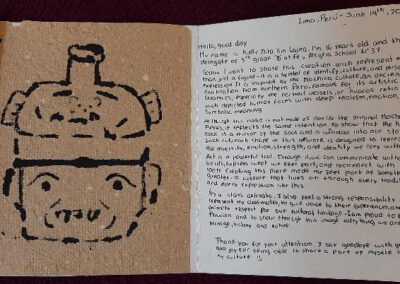 Lima, Perú - June 19th, 20
Hello, good day
My name is Kiei Niño Im Laura, I'm 16 years old and the
delegate of 5th grade "B" of the Alegria School N°37
Today I want to share this creation which represent more
than just a figure - it is a symbol of identity, culture, and personal
expression. It is inspired by the Mochica culture, an ancient
civilization from northern Peru, famous for its artistic
ceramics, especially the portrait vessels or huacos retrato
which depicted human faces with deep realism, emotion, and
symbolic meaning.
Although this mask is not made of clay like the original Mochica
pieces, it reflects the same intention to show that the human
face is a mirror of the soul and a window into our story
Each cut and shape in this artwork is designed to represent
the diversity, emotion, strength, and identity we carry within
Art is a powerful tool. Through it we can communicate without
words, express what we feel part, and reconnect with our
roots. Creating this piece made me feel part of something
greater: a culture that lives on through every tradition
and every expression like this.
As a class delegate, I also feel a strong responsibility to
represent my classmates, to give voice to their experiences, and
promote respect for our cultural heritage. I am proud to be
Peruvian and to show through this image everything we are
through history and future.
Thank you for your attention. I say goodbye with gratitude
and joy for being able to share a part of myself and
my culture